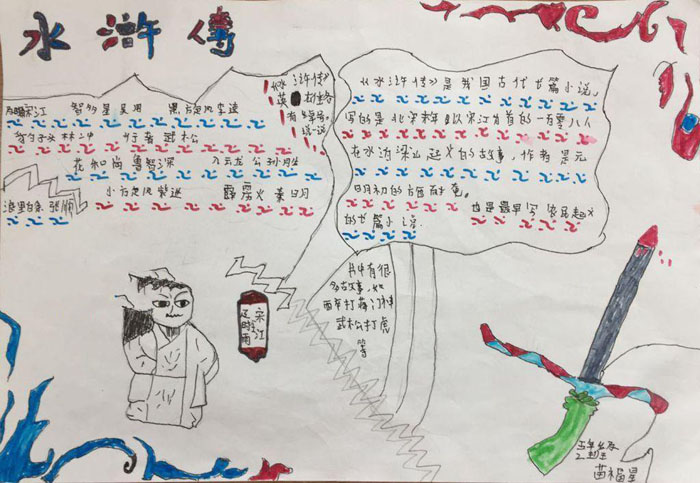 水浒傳
《水浒传》
英雄
有绰号。
说一说
宋江 智多星吴用 黑旋风李逵
豹子头林冲 行者武松
花和尚鲁智深 入云龙公孙胜
小旋风柴进 霹雳火秦明
浪里白条 张顺
《水浒传》是我国古代长篇小说,
写的是北宋末年以宋江为首的一百零八人
在水泊梁山起义的故事,作者是元
明初的施耐庵。
也是最早写农民起义
的长篇小说.
书中有很
多故事,如
西卒打蒋门神
武松打虎
等
及时雨
宋江
五年级
2班
苗福星